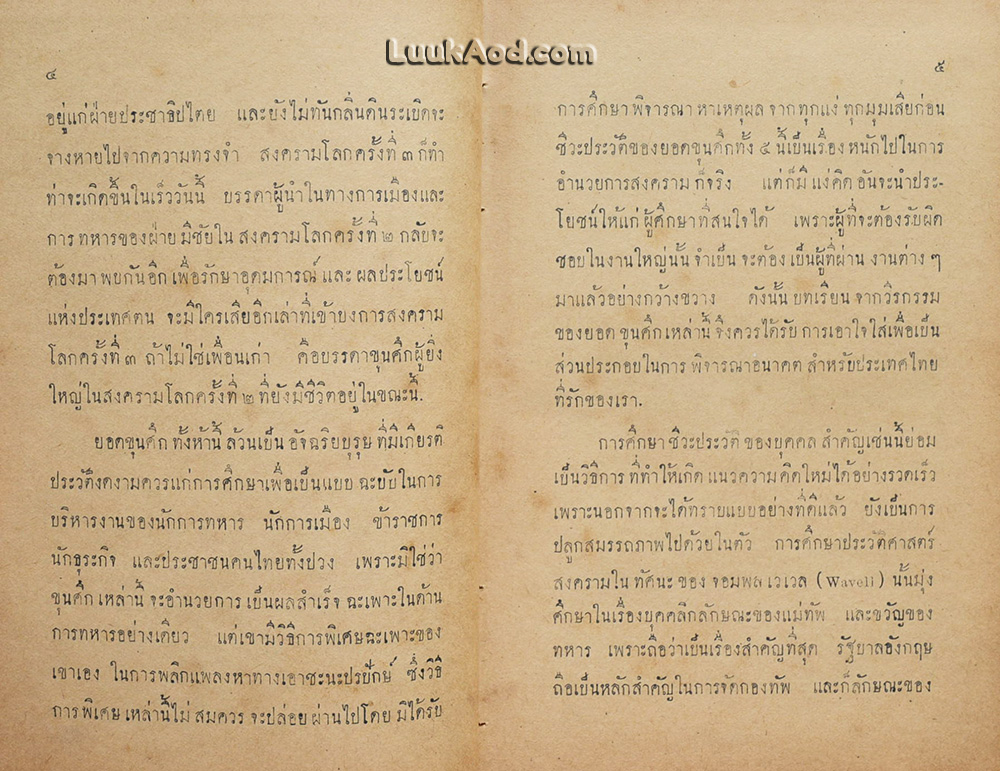 LuukAod.com
๔
อยู่แก่ฝ่ายประชาธิปไตย และยังไม่ทันกลิ่นดินระเบิดจะ
จางหายไปจากความทรงจำ สงครามโลกครั้งที่ ๓ ก็ทำ
ท่าจะเกิดขึ้นในเร็ววันนี้ บรรดาผู้นำในทางการเมืองและ
การทหารของฝ่ายมีชัยในสงครามโลกครั้งที่ ๒ กลับจะ
ต้องมาพบกันอีก เพื่อรักษาอุดมการณ์ และ ผลประโยชน์
แห่งประเทศตน จะมีใครเสียอีกเล่าที่เข้าบงการสงคราม
โลกครั้งที่ ๓ ถ้าไม่ใช่เพื่อนเก่า คือบรรดาขุนศึกผู้ยิ่ง
ใหญ่ในสงครามโลกครั้งที่ ๒ ที่ยังมีชีวิตอยู่ในขณะนี้.
ยอดขุนศึก ทั้งห้านี้ ล้วนเป็น อัจฉริยบุรุษ ที่มีเกียรติ
ประวัติงดงามควรแก่การศึกษาเพื่อเป็นแบบ ฉะบับในการ
บริหารงานของนักการทหาร นักการเมือง ข้าราชการ
นักธุระกิจ และประชาชนคนไทยทั้งปวง เพราะมิใช่ว่า
ขุนศึก เหล่านี้ จะอำนวยการ เป็นผลสำเร็จ ฉะเพาะในด้าน
การทหารอย่างเดียว แต่เขามีวิธีการพิเศษฉะเพาะของ
เขาเอง ในการพลิกแพลงหาทางเอาชะนะปรปักษ์ ซึ่งวิธี
การพิเศษ เหล่านี้ไม่ สมควร จะปล่อย ผ่านไปโดย มิได้รับ
๕
การศึกษา พิจารณา หาเหตุผล จาก ทุกแง่ ทุกมุมเสียก่อน
ชีวะประวัติของยอดขุนศึกทั้ง ๕ นี้เป็นเรื่อง หนักไปในการ
อำนวยการสงคราม ก็จริง แต่ก็มี แง่คิด อันจะนำประ-
โยชน์ให้แก่ ผู้ศึกษา ที่สนใจได้ เพราะผู้ที่จะต้องรับผิด
ชอบในงานใหญ่นั้น จำเป็น จะต้อง เป็นผู้ที่ผ่าน งานต่าง ๆ
มาแล้วอย่างกว้างขวาง ดังนั้น บทเรียน จากวีรกรรม
ของยอด ขุนศึก เหล่านี้ จึงควรได้รับ การเอาใจใส่เพื่อเป็น
ส่วนประกอบในการ พิจารณาอนาคต สำหรับประเทศไทย
ที่รักของเรา.
การศึกษา ชีวะประวัติ ของบุคคล สำคัญเช่นนี้ย่อม
เป็นวิธีการ ที่ทำให้เกิด แนวความ คิดใหม่ได้อย่างรวดเร็ว
เพราะนอกจากจะได้ทราบแบบอย่างที่ดีแล้ว ยังเป็นการ
ปลูกสมรรถภาพไปด้วยในตัว การศึกษาประวัติศาสตร์
สงครามใน ทัศนะ ของ จอมพล เวเวล (Wavell) นั้นมุ่ง
ศึกษาในเรื่องบุคคลิกลักษณะของแม่ทัพ และขวัญของ
ทหาร เพราะถือว่าเป็นเรื่องสำคัญที่สุด รัฐบาลอังกฤษ
ถือเป็นหลักสำคัญในการจัดกองทัพ และก็ลักษณะของ